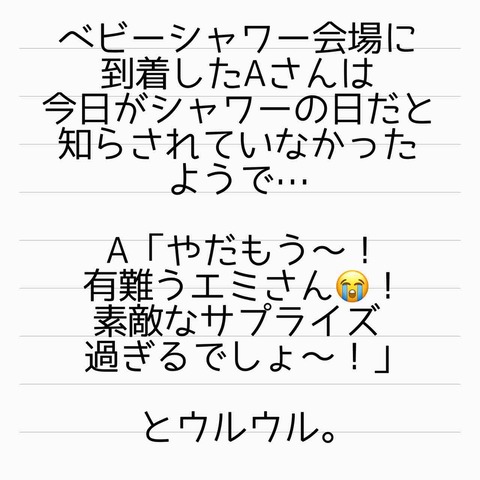 ベビーシャワー会場に
到着したAさんは
今日がシャワーの日だと
知らされていなかった
ようで…
A「やだもう〜！
有難うエミさん😭！
素敵なサプライズ
過ぎるでしょ〜！」
とウルウル。